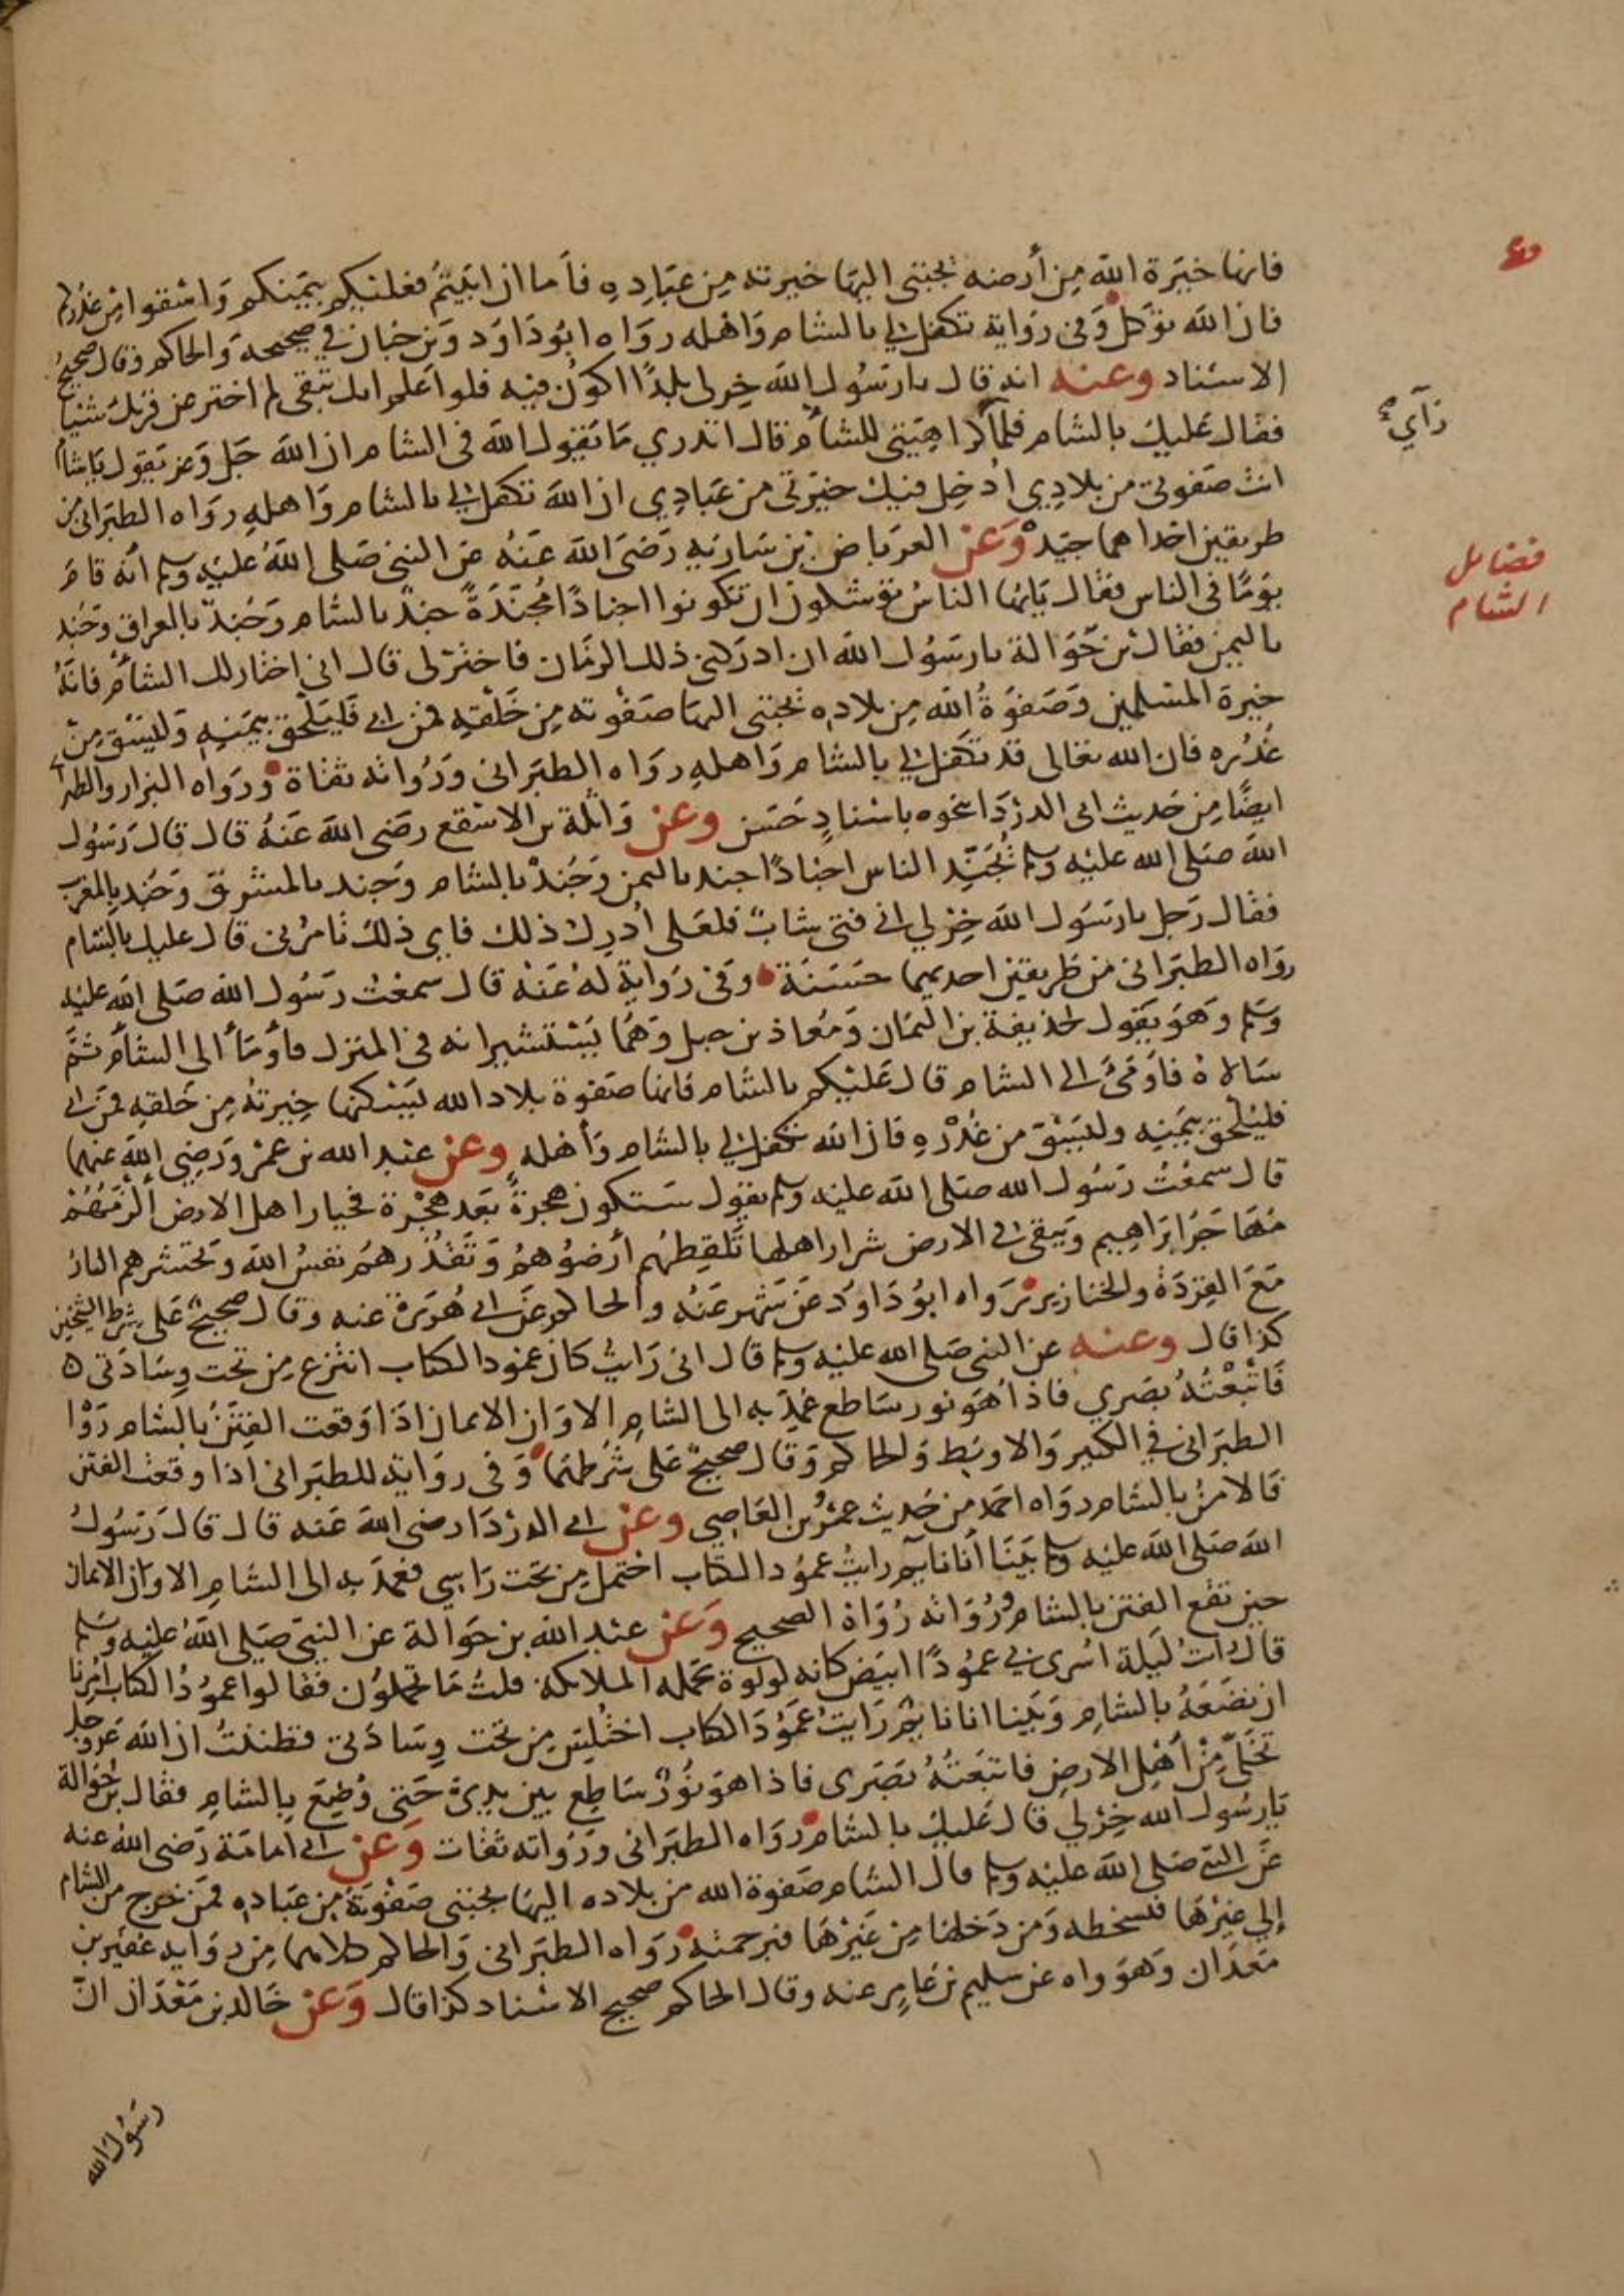 فانها خيرة الله من أرضه يجتبى اليها خيرته من عباده فأما ان ابيتم فعليكم بيمنكم واسقوا من غدركم
فان الله توكل وفى رواية تكفل لي بالشام واهله رواه ابو داود وبن حبان في صحيحه والحاكم وقال صحيح
الاسناد وعنه انه قال يا رسول الله خر لى بلدًا اكون فيه فلو اعلم انك تبقى لم اختر عن قربك شيئا
فقال عليك بالشام فلما كراهيتى للشام قال اتدري ما يقول الله فى الشام ان الله جل وعز يقول يا شام
انت صفوتى من بلادي أدخل فيك خيرتى من عبادي ان الله تكفل لي بالشام واهله رواه الطبرانى من
طريقين احداهما جيد وعن العرباض بن سارية رضى الله عنه عن النبى صلى الله عليه وسلم أنه قام
يومًا فى الناس فقال يا ايها الناس توشكون ان تكونوا اجنادًا مجندة جند بالشام وجند بالعراق وجند
باليمن فقال بن حوالة يا رسول الله ان ادركنى ذلك الزمان فاختر لى قال انى اختار لك الشام فانه
خيرة المسلمين وصفوة الله من بلاده يجتبى اليها صفوته من خلقه فمن ابى فليلحق بيمنه وليسق من
غدره فان الله تعالى قد تكفل لي بالشام واهله رواه الطبرانى ورواته ثقاة ورواه البزار والطبرانى
ايضًا من حديث ابى الدرداء نحوه باسناد حسن وعن واثلة بن الاسقع رضى الله عنه قال قال رسول
الله صلى الله عليه وسلم تجند الناس اجنادًا جند باليمن وجند بالشام وجند بالمشرق وجند بالمغرب
فقال رجل يا رسول الله خر لي انى فتى شاب فلعلى أدرك ذلك فاي ذلك تامرنى قال عليك بالشام
رواه الطبرانى من طريقين احديهما حسنة وفى رواية له عنه قال سمعت رسول الله صلى الله عليه
وسلم وهو يقول لحذيفة بن اليمان ومعاذ بن جبل وهما يستشيرانه فى المنزل فأومأ الى الشام ثم
سالاه فأومى الى الشام قال عليكم بالشام فانها صفوة بلاد الله يسكنها خيرته من خلقه فمن ابى
فليلحق بيمنه وليسق من غدره فان الله تكفل لي بالشام وأهله وعن عبد الله بن عمرو رضى الله عنهما
قال سمعت رسول الله صلى الله عليه وسلم يقول ستكون هجرة بعد هجرة فخيار اهل الارض ألزمهم
مهاجر ابراهيم ويبقى في الارض شرار اهلها تلقطهم أرضوهم وتقذرهم نفس الله وتحشرهم النار
مع القردة والخنازير رواه ابو داود عن شهر عنه والحاكم عن ابى هريرة عنه وقال صحيح على شرط الشيخين
كذا قال وعنه عن النبى صلى الله عليه وسلم قال انى رايت كان عمود الكتاب انتزع من تحت وسادتى ه
فاتبعته بصري فاذا هو نور ساطع عمد به الى الشام الا وان الايمان اذا وقعت الفتن بالشام رواه
الطبرانى في الكبير والاوسط والحاكم وقال صحيح على شرطهما وفى رواية للطبرانى اذا وقعت الفتن
فالامن بالشام رواه احمد من حديث عمرو بن العاصى وعن ابى الدرداء رضى الله عنه قال قال رسول
الله صلى الله عليه وسلم بينا أنا نايم رايت عمود الكتاب احتمل من تحت راسي فعمد به الى الشام الا وان الايمان
حين تقع الفتن بالشام ورواته رواة الصحيح وعن عبد الله بن حوالة عن النبى صلى الله عليه وسلم
قال رات ليلة اسرى بي عمودًا ابيض كانه لولوة تحمله الملايكة قلت ما تحملون فقالوا عمود الكتاب امرنا
ان نضعه بالشام وبينا انا نايم رايت عمود الكتاب اختلس من تحت وسادتى فظننت ان الله عز وجل
تخلى من أهل الارض فاتبعته بصرى فاذا هو نور ساطع بين يدي حتى وضع بالشام فقال بن حوالة
يا رسول الله خر لي قال عليك بالشام رواه الطبرانى ورواته ثقات وعن ابى امامة رضى الله عنه
عن النبى صلى الله عليه وسلم قال الشام صفوة الله من بلاده اليها يجتبى صفوته من عباده فمن خرج من الشام
إلى غيرها فبسخطه ومن دخلها من غيرها فبرحمته رواه الطبرانى والحاكم كلاهما من رواية عفير بن
معدان وهو واه عن سليم بن عامر عنه وقال الحاكم صحيح الاسناد كذا قال وعن خالد بن معدان ان
رسول الله
رآي
فضائل
الشام